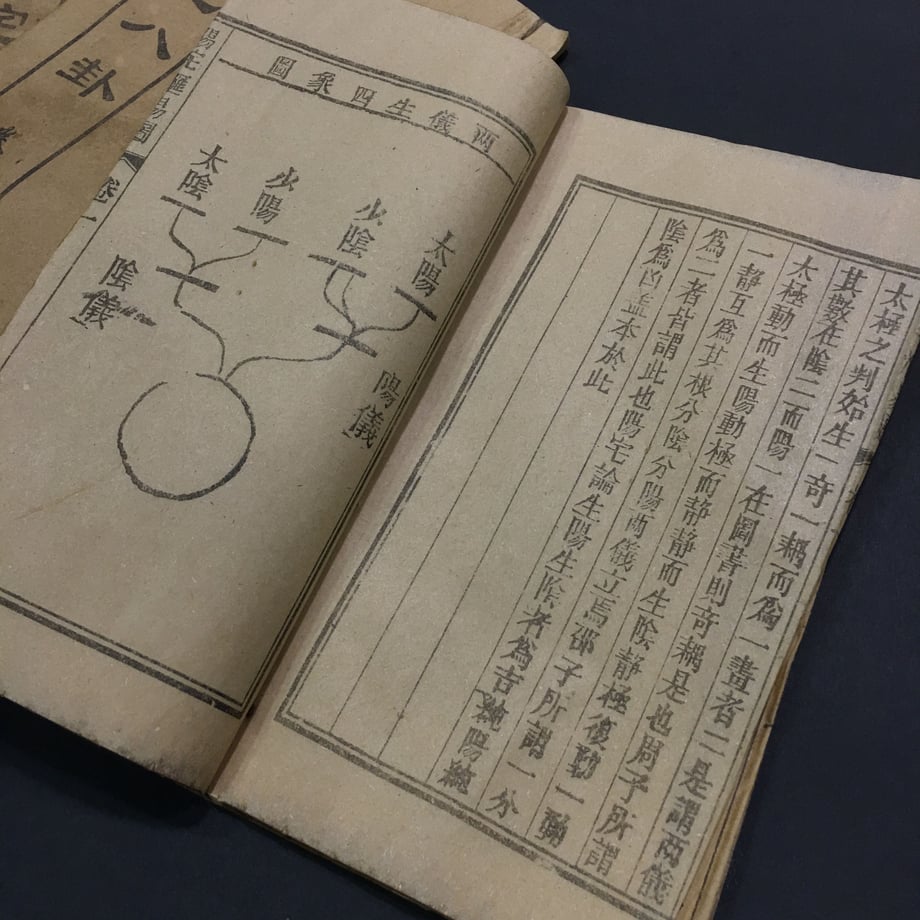 太極之判始生一奇一耦而為一畫者二是謂兩儀
其數在陰二而陽一在圖書則奇耦是也周子所謂
太極動而生陽動極而静静而生陰静極復動一動
一静互為其根分陰分陽兩儀立焉邵子所謂一分
為二者皆謂此也陽宅論生陽生陰者為吉純陽純
陰為凶盖本於此
兩儀生四象圖
太陽
少陰
少陽
太陰
陽儀
陰儀
卷一
八卦
宅